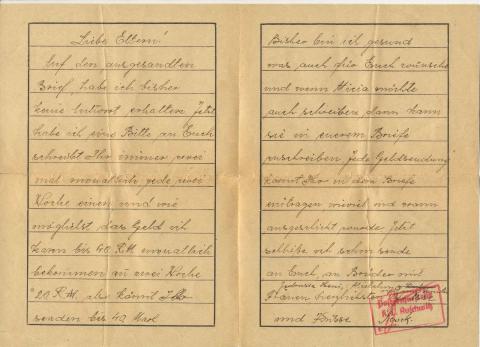 Liebe Eltern!
Auf den ausgesandten
Brief, habe ich bisher
keine Antwort erhalten. Jetzt
habe ich eine Bitte an Euch
schreibt Ihr immer zwei
mal monatlich jede zwei
Woche einen und wie
möglichst das Geld ich
kann bis 40 R.M. monatlich
bekommen zu zwei Woche
20 R.M. also könnt Ihr
senden bis 40 Mark
Bisher bin ich gesund
was auch für Euch wünsche
und wenn möchte
auch schreiben, dann kann
sie in euerem Briefe
zuschreiben jede Geldsendung
kannt Ihr in dem Briefe
eintragen wieviel und wann
ausgeschickt wurde. Jetzt
schließe ich schon sende
an Euch, an Brüder mit
Frauen
und Küsse
K.L. Auschwitz